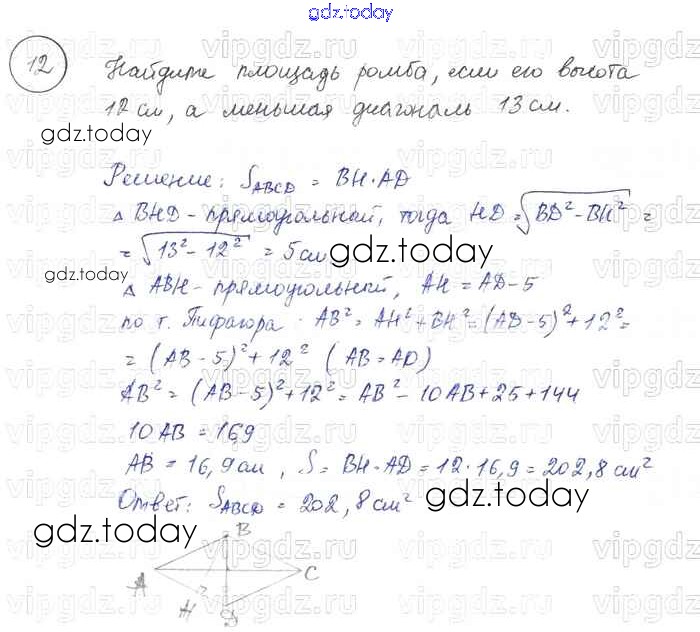 gdz.today
12
Найдите площадь ромба, если его высота
12 см, а меньшая диагональ 13 см.
gdz.today
Решение: S_ABCD = BH·AD
△ BHD - прямоугольный, тогда HD = √(BD² - BH²) =
= √(13² - 12²) = 5 см
gdz.today
gdz.today
△ ABH - прямоугольный, AH = AD - 5
по т. Пифагора AB² = AH² + BH² = (AD - 5)² + 12² =
= (AB - 5)² + 12² (AB = AD)
AB² = (AB - 5)² + 12² = AB² - 10AB + 25 + 144
10 AB = 169
AB = 16,9 см, S = BH·AD = 12·16,9 = 202,8 см²
Ответ: S_ABCD = 202,8 см²
gdz.today
gdz.today
B
A
C
H
D
vipgdz.ru